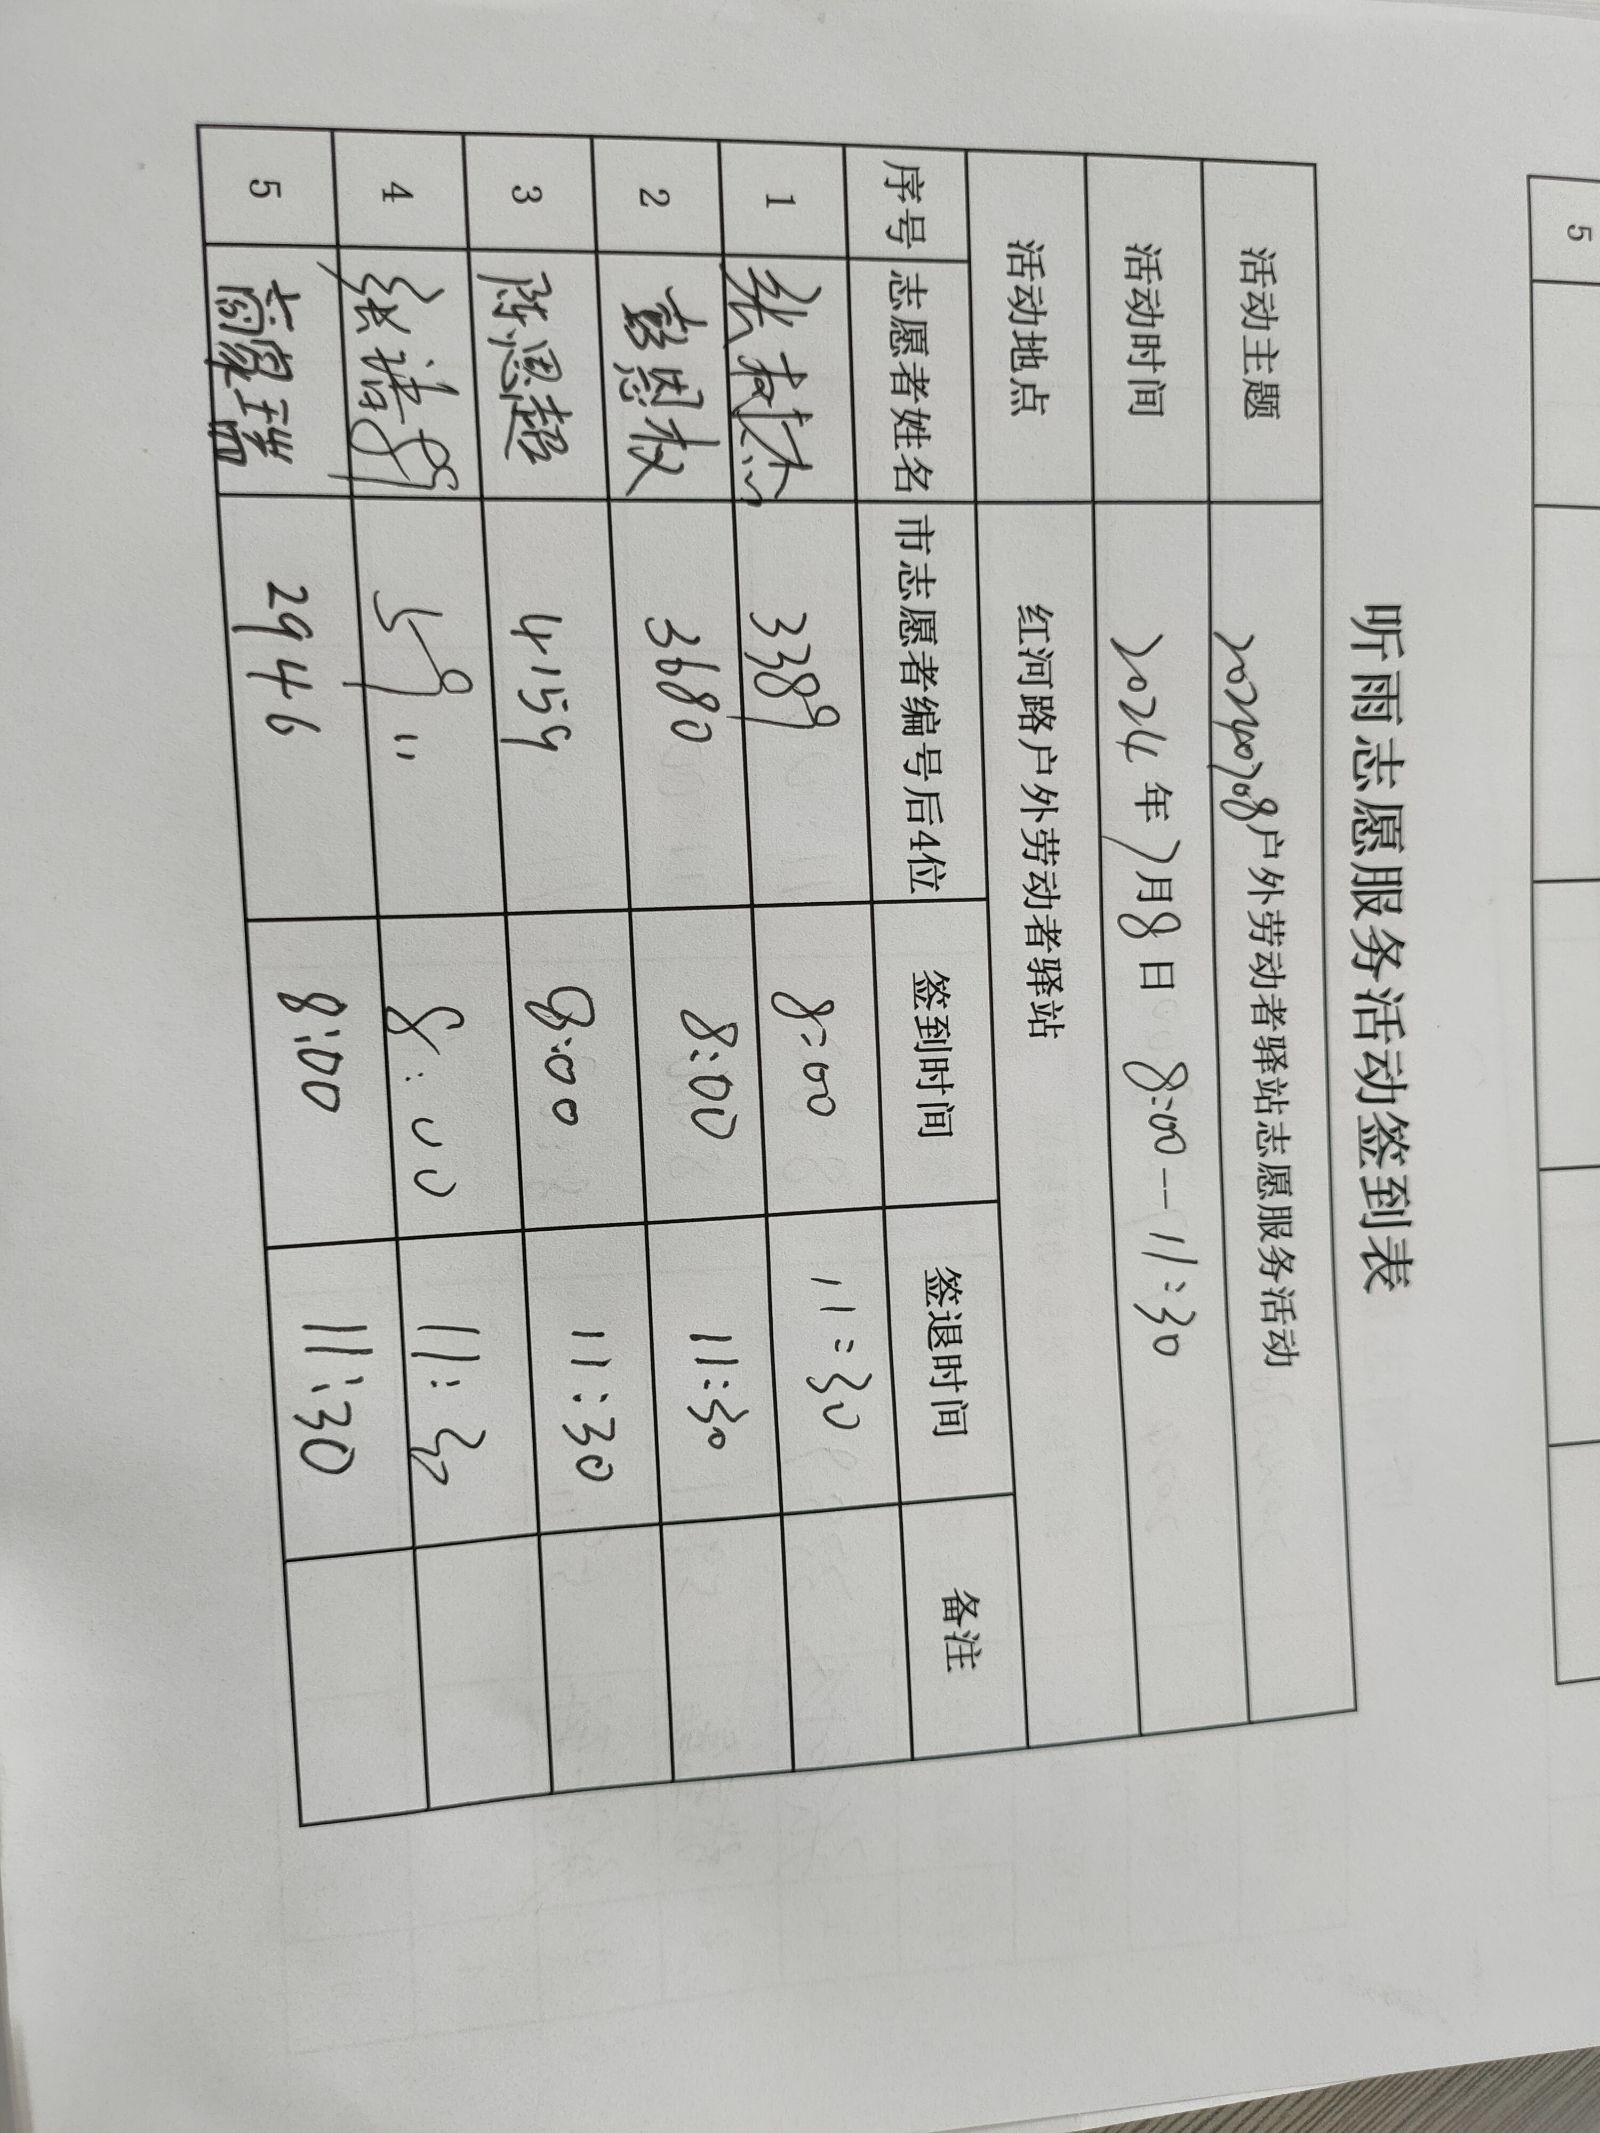 5
听雨志愿服务活动签到表
活动主题 20240708户外劳动者驿站志愿服务活动
活动时间 2024年7月8日 8:00--11:30
活动地点 红河路户外劳动者驿站
序号 志愿者姓名 市志愿者编号后4位 签到时间 签退时间 备注
1 张树杰 3389 8:00 11:30
2 彭恩权 3680 8:00 11:30
3 陈思超 4159 8:00 11:30
4 张 8:00 11:30
5 2946 8:00 11:30